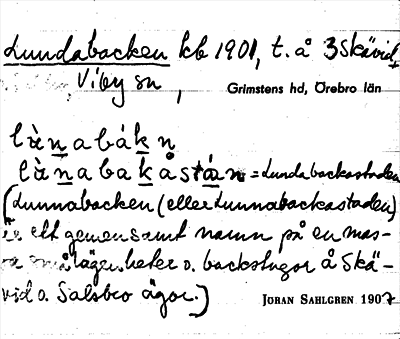 Lundabacken kb 1901, t. å 3 Skävid,
Viby sn,
Grimstens hd, Örebro län
lùnabákn
lùnabakåstán = Lundabackastaden
(Lunnabacken (eller Lunnabackastaden)
är ett gemensamt namn på en mas-
sa små lägenheter o. backstugor å Skä-
vid o. Salsbro ägor.)
JÖRAN SAHLGREN 1907